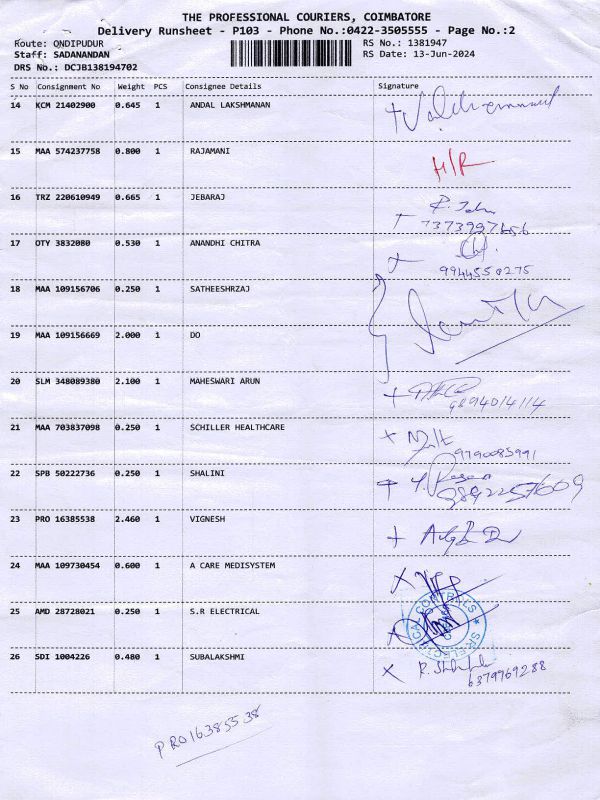 THE PROFESSIONAL COURIERS, COIMBATORE
Delivery Runsheet - P103 - Phone No.:0422-3505555 - Page No.:2
Route: ONDIPUDUR RS No.: 1381947
Staff: SADANANDAN RS Date: 13-Jun-2024
DRS No.: DCJB138194702
S No Consignment No Weight PCS Consignee Details Signature
14 KCM 21402900 0.645 1 ANDAL LAKSHMANAN
15 MAA 574237758 0.800 1 RAJAMANI H/R
16 TRZ 220610949 0.665 1 JEBARAJ
7373997656
17 OTY 3832080 0.530 1 ANANDHI CHITRA
9944550275
18 MAA 109156706 0.250 1 SATHEESHRZAJ
19 MAA 109156669 2.000 1 DO
20 SLM 348089380 2.100 1 MAHESWARI ARUN
9894014114
21 MAA 703837098 0.250 1 SCHILLER HEALTHCARE
9790085991
22 SPB 50222736 0.250 1 SHALINI
23 PRO 16385538 2.460 1 VIGNESH
24 MAA 109730454 0.600 1 A CARE MEDISYSTEM
25 AMD 28728021 0.250 1 S.R ELECTRICAL
26 SDI 1004226 0.480 1 SUBALAKSHMI
6379969288
PRO16385538